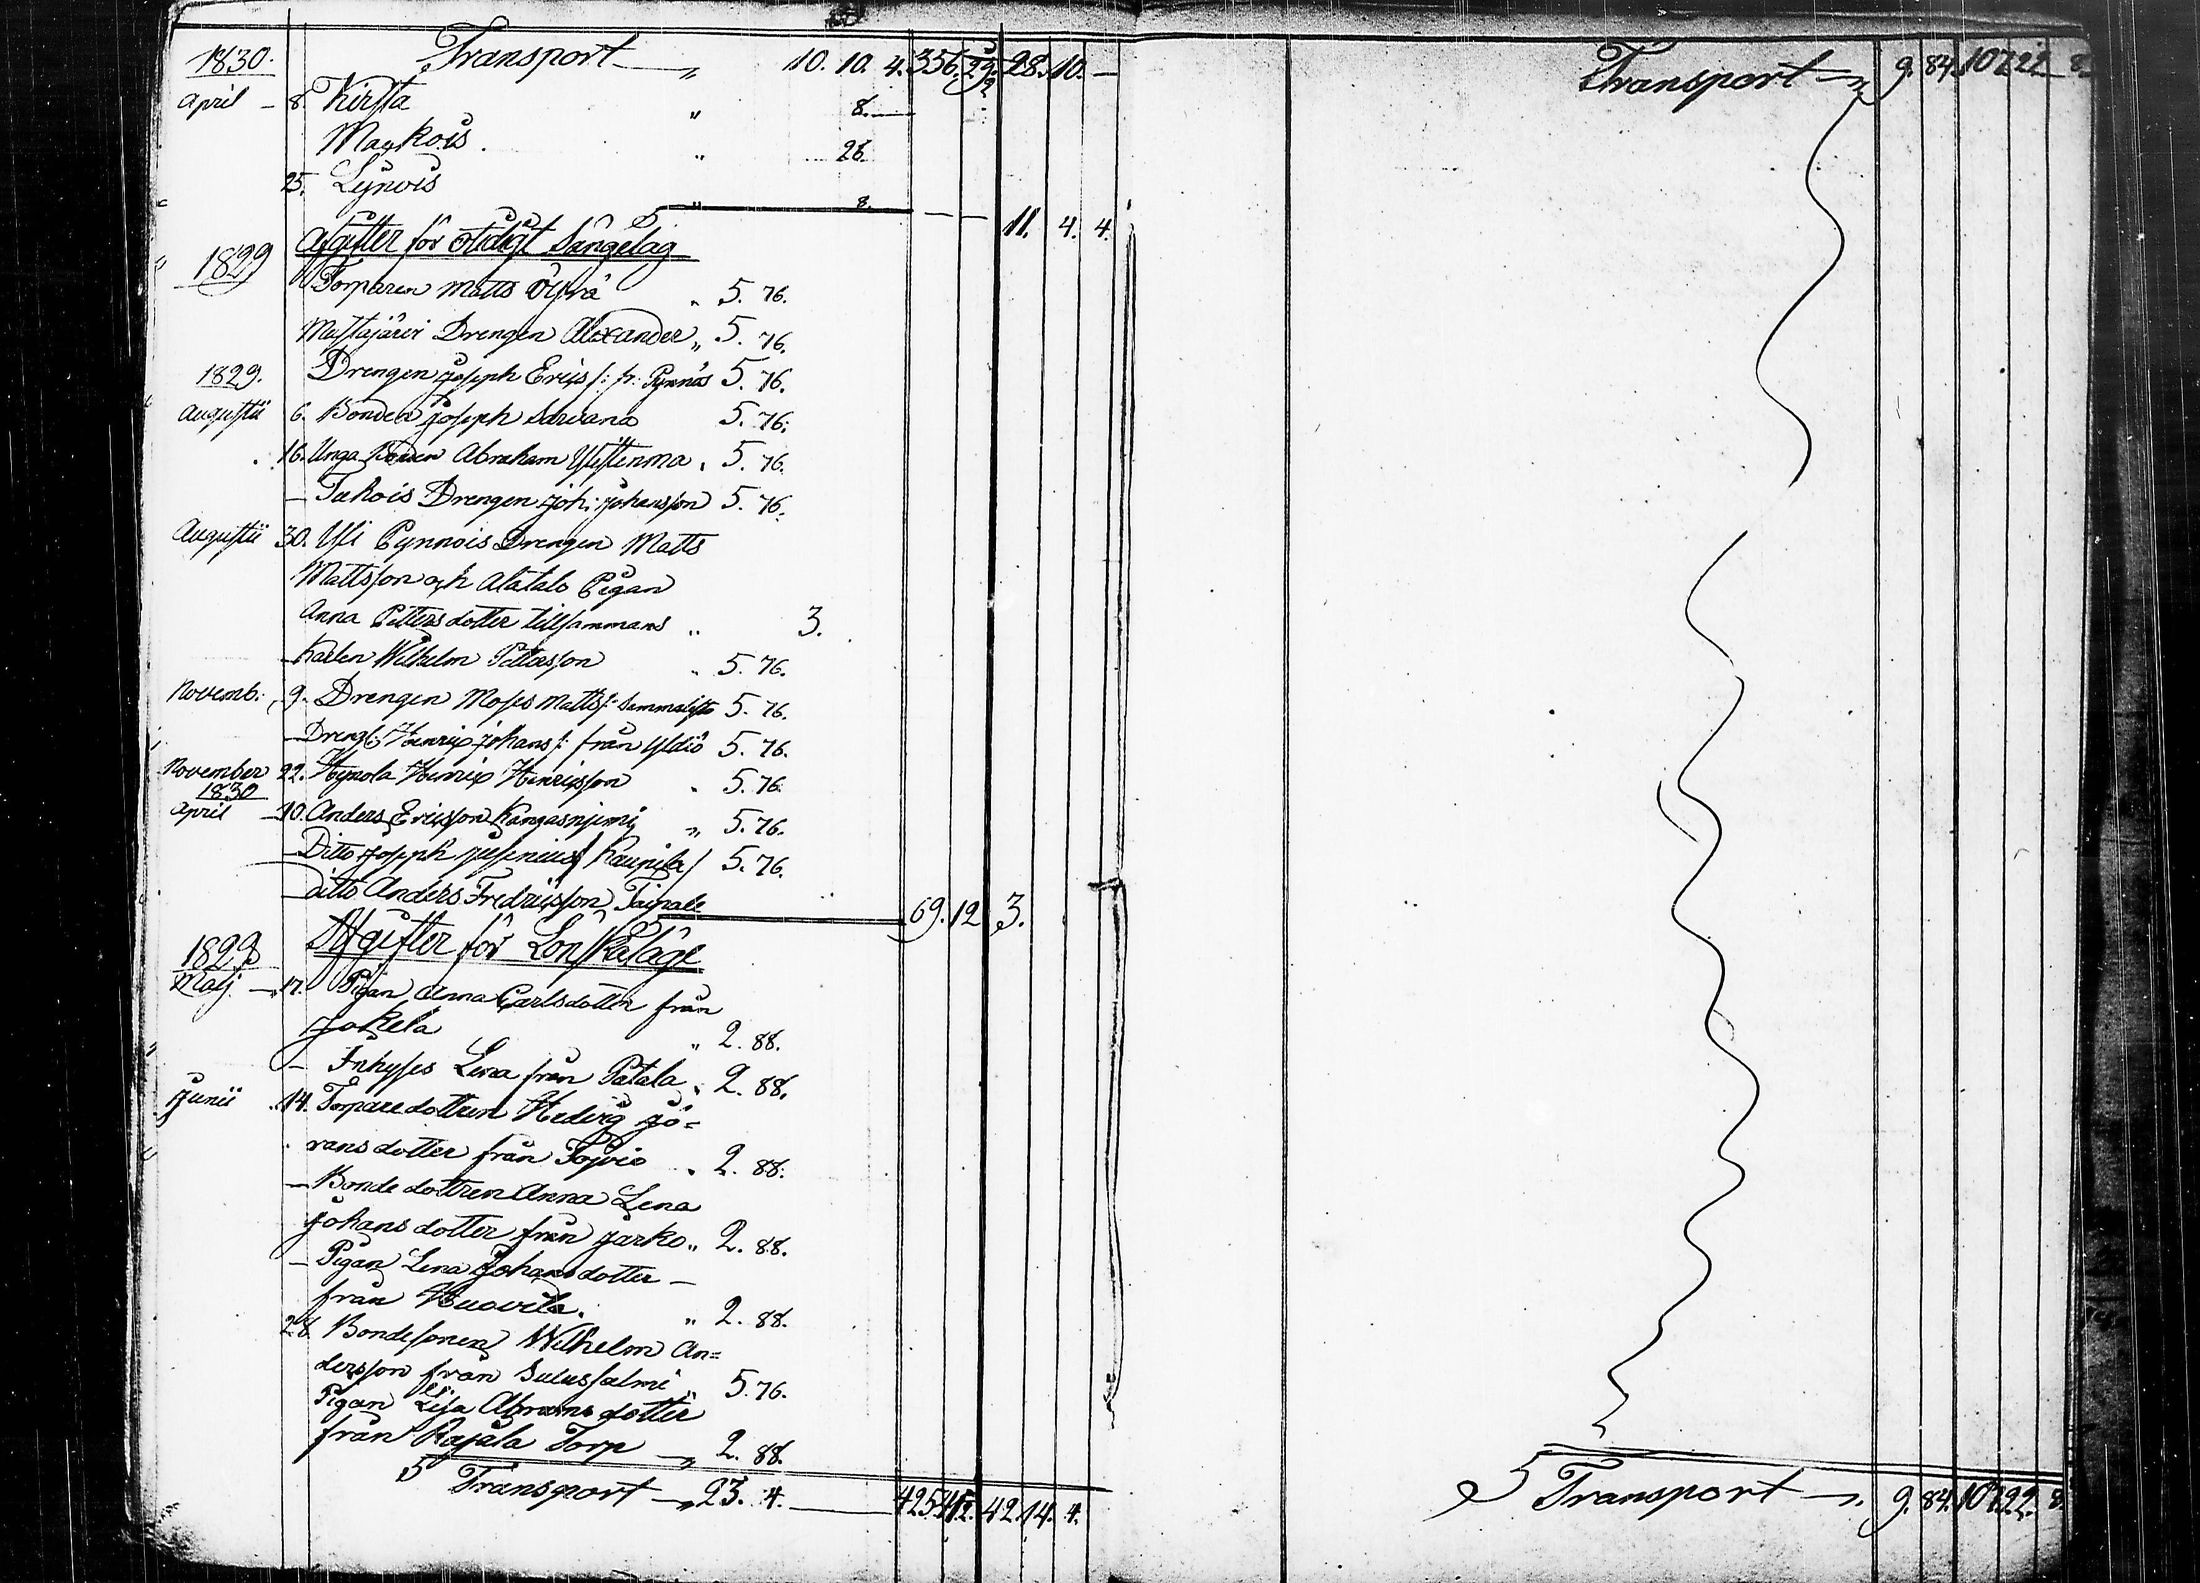 1830. Transport — „ 10. 10. 4. 356. 29 1/2. 28. 10. —
April — 8. Kirsta „ 8. —
Maukois . „ 28.
25. Lynois „ 8. — — 11. 4. 4.
1829 Afgifter för otidigt Sängelag
Torparen Matts „ 5. 76.
Mustajärvi Drengen Alexander „ 5. 76.
1829. Drengen Joseph Ericss: fr: Pynnös 5. 76.
Augustii 6. Bonden Joseph Sarvana 5. 76.
16. Unga Bonden Abraham „ 5. 76.
— Tukois Drengen Joh: Johansson 5. 76.
Augustii 30. Yli Pynnois Drengen Matts
Mattsson och Alatalo Pigan
Anna Pettersdotter tillsammans „ 3.
— Karlen Wilhelm Pettersson „ 5. 76.
Novemb: 9. Drengen Moses Matts: 5. 76.
— Dreng: Henric Johans: från Yldiö 5. 76.
November 22. Hynola Henric Henricsson „ 5. 76.
1830
April — 10. Anders Ericsson Kangasnjemi „ 5. 76.
— Ditto Joseph Kaupila / 5. 76.
— Ditto Anders Fredricsson Taipale 69. 12. 3.
Afgifter för Lönskaläge
1829
Maij — 17. Pigan Anna Carlsdotter från
Jokela „ 2. 88.
— Inhyses Lena från Patala „ 2. 88.
Junii 14. Torparedottren Hedvig Jö=
ransdotter från „ 2. 88.
— Bondedottren Anna Lena
Johansdotter från Jarko „ 2. 88.
— Pigan Lena Johansdotter —
från „ 2. 88.
28. Bondesonen Wilhelm An=
dersson från Sulussalmi „ 5. 76.
Pigan Lisa Abramsdotter
från Rajala Torp — „ 2. 88.
Transport — „ 23. 4. — 425. 41 1/2. 42. 14. 4.
Transport — „ 9. 84. 107. 22. 8.
Transport — „ 9. 84. 107. 22. 8.